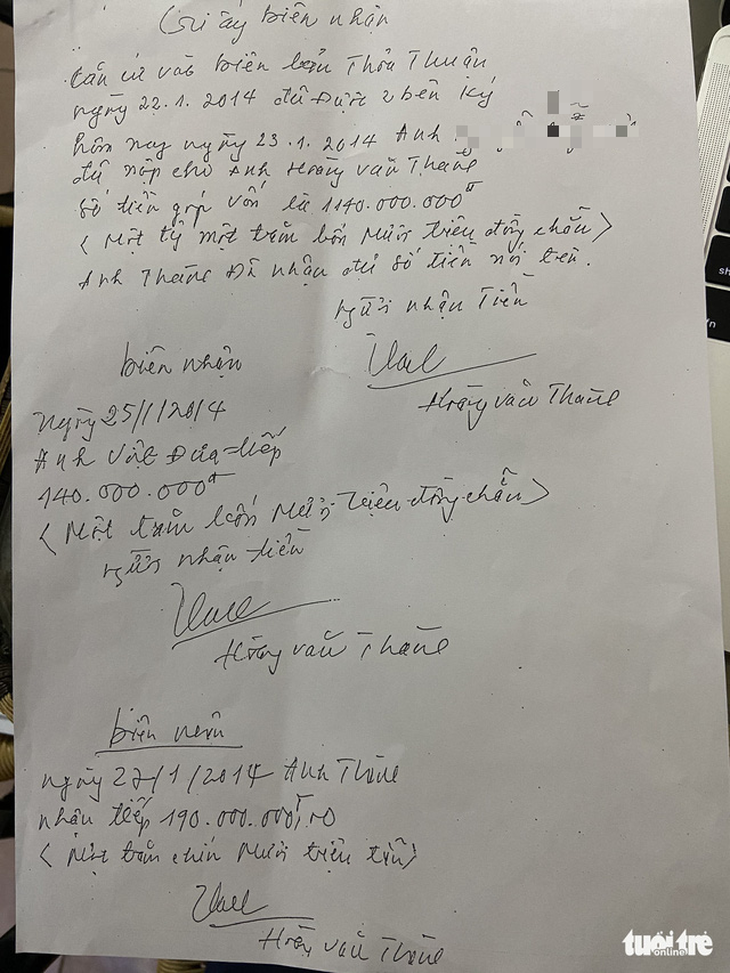 Giấy biên nhận
Căn cứ vào biên bản Thỏa Thuận
ngày 22.1.2014 đã Được 2 bên ký
hôm nay ngày 23.1.2014 Anh
đã nộp cho Anh Hoàng văn Thắng
số tiền góp vốn là 1140.000.000đ
< Một tỷ một trăm bốn Mươi triệu đồng chẵn >
Anh Thắng Đã nhận đủ số tiền nói trên.
người nhận Tiền
Hoàng văn Thắng
biên nhận
ngày 25/1/2014
Anh Việt Đưa tiếp
140.000.000đ
< Một trăm bốn Mươi triệu đồng chẵn >
người nhận tiền
Hoàng văn Thắng
biên nhận
ngày 27/1/2014 Anh Thắng
nhận tiếp 190.000.000đ
< Một trăm chín Mươi triệu >
Hoàng văn Thắng
tuổi trẻ
online